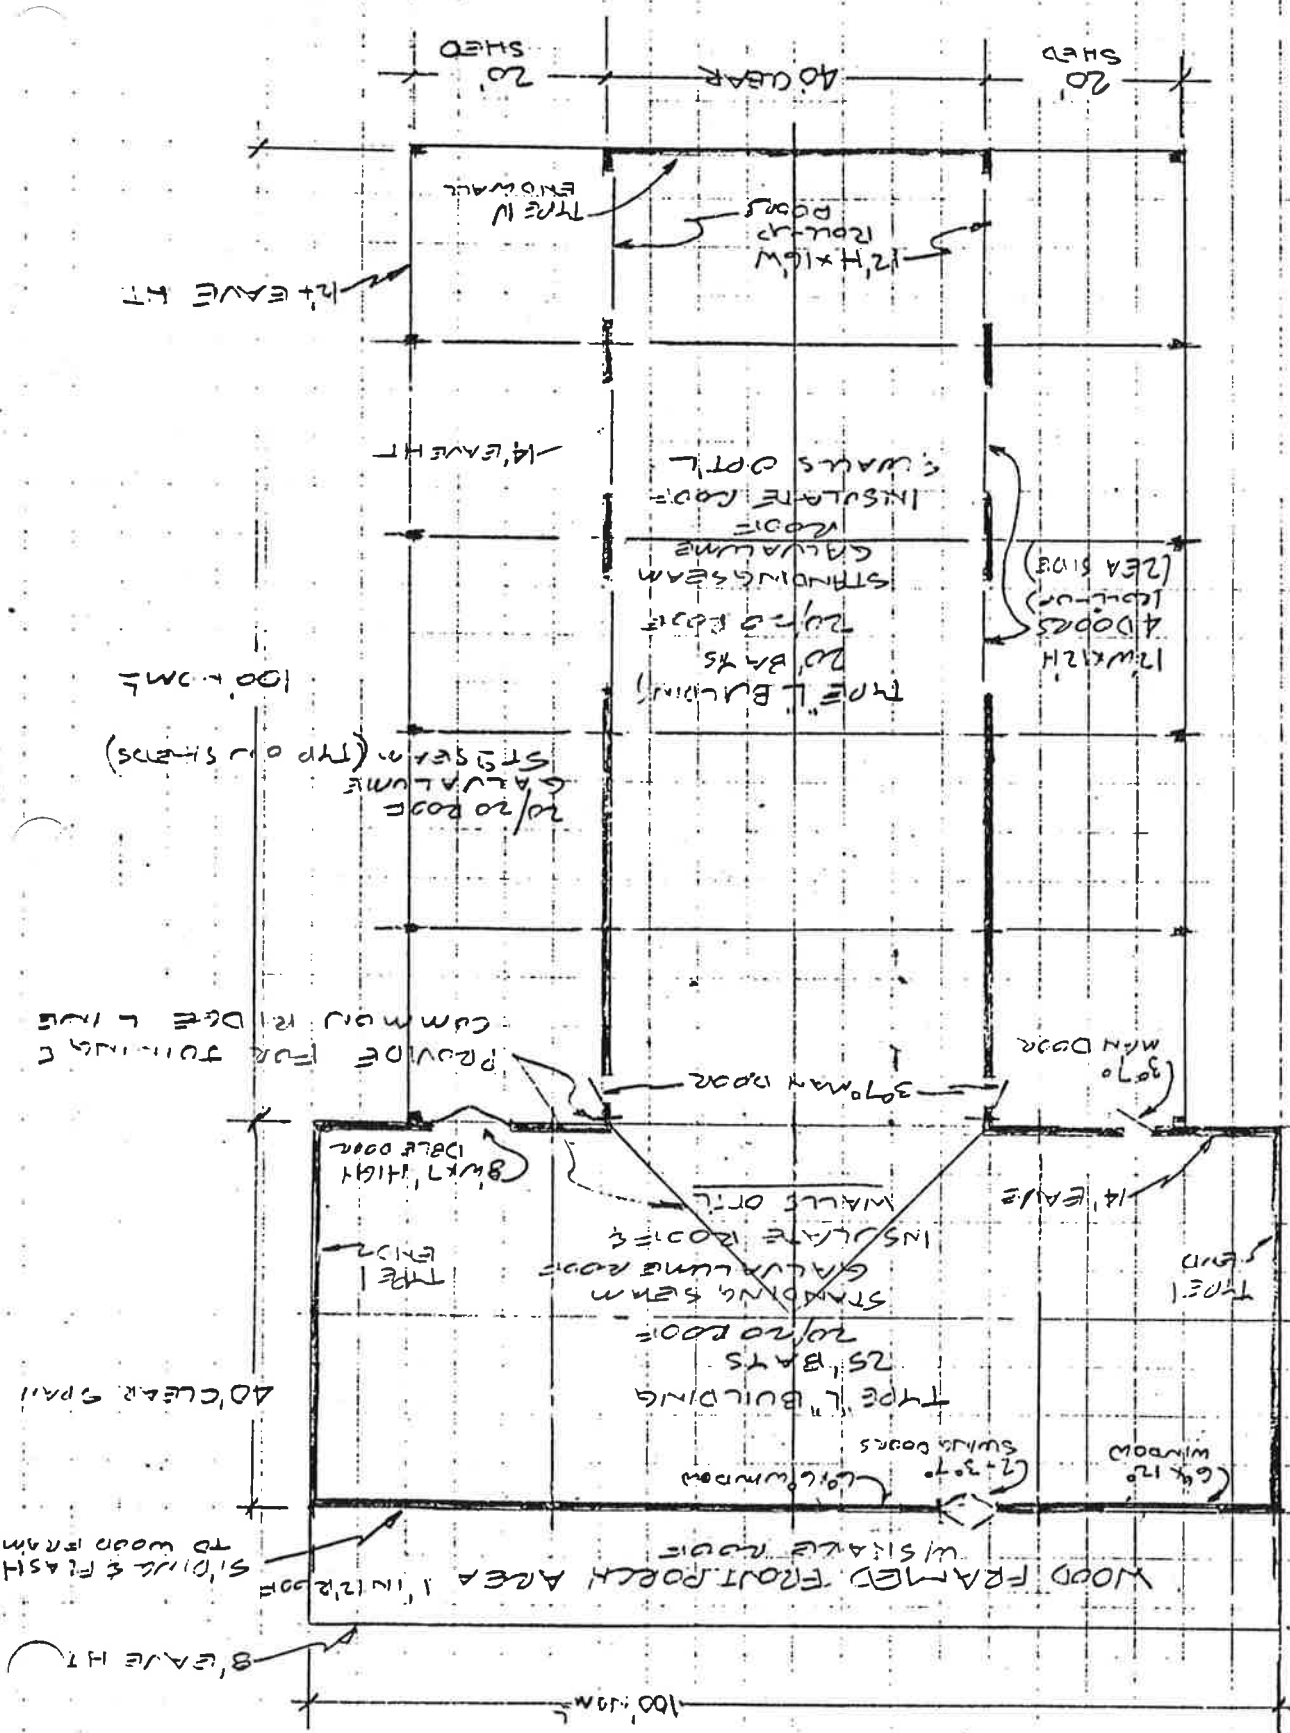 100' NOM'L
8' EAVE HT
WOOD FRAMED FRONT PORCH AREA 1" IN 12" ROOF
W/SHAKE ROOF
SIDING & FLASH
TO WOOD FRAM
6⁴ x 12⁰
WINDOW
2-3⁰7⁰
SWING DOORS
6⁰ WINDOW
40' CLEAR SPAN
TYPE "L" BUILDING
25' BAYS
20/20 ROOF
STANDING SEAM
GALVALUME ROOF
INSULATE ROOF &
WALLS OPT'L
TYPE 1
END
TYPE 1
END
14' EAVE
8'W x 7' HIGH
DBLE DOOR
3⁰7⁰
MAN DOOR
3⁰7⁰ MAN DOOR
PROVIDE FOR JOINING &
COMMON RIDGE LINE
20/20 ROOF
GALVALUME
ST'G SEAM (TYP ON SHEDS)
100' NOM'L
TYPE "L" BUILDING
20' BAYS
20/20 ROOF
STANDING SEAM
GALVALUME
ROOF
INSULATE ROOF
& WALLS OPT'L
12'W x 12'H
4 DOORS
(ROLL-UP)
(2 EA SIDE)
14' EAVE HT
12'+ EAVE HT
12'H x 16'W
ROLL-UP
DOORS
TYPE IV
ENDWALL
20'
SHED
40' CLEAR
20'
SHED